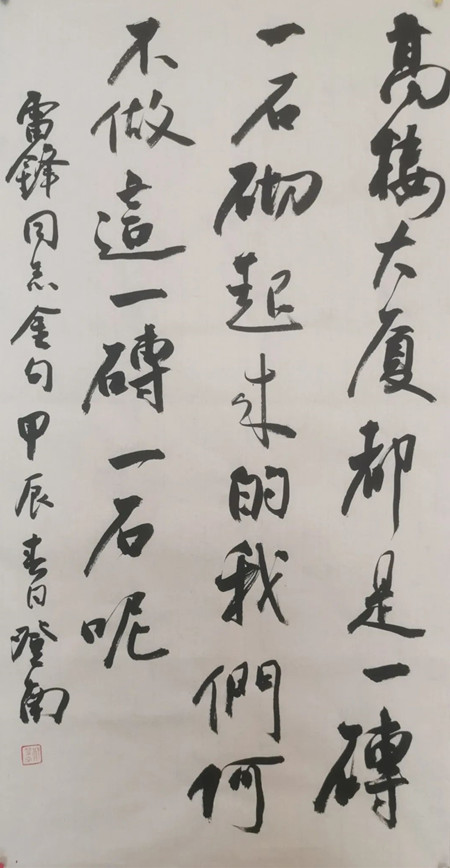 高楼大厦都是一磚
一石砌起来的我們何
不做這一磚一石呢
雷鋒同志金句甲辰春日隥南